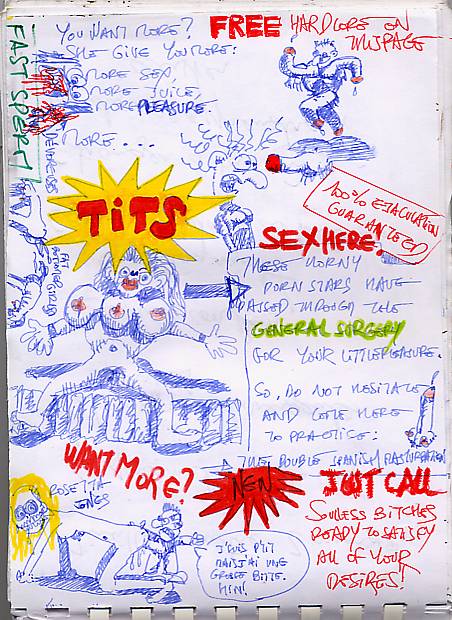 YOU WANT MORE?
SHE GIVE YOU MORE:
MORE SEX,
MORE JUICE,
MORE PLEASURE.
MORE...
FREE HARDCORE ON
THIS PAGE
FAST SPERM
100% EJACULATION
GUARANTEED
TITS
SEX HERE.
THESE HORNY
PORN STARS HAVE
PASSED THROUGH THE
GENERAL SURGERY
FOR YOUR LITTLE PLEASURE.
SO, DO NOT HESITATE
AND COME HERE
TO PRACTICE:
THE DOUBLE SPANISH MASTURBATION
WANT MORE?
NEW
JUST CALL
SOULESS BITCHES
READY TO SATISFY
ALL OF YOUR
DESIRES!
J'SUIS P'TIT
MAIS J'AI UNE
GROSSE BITE.
HIN!